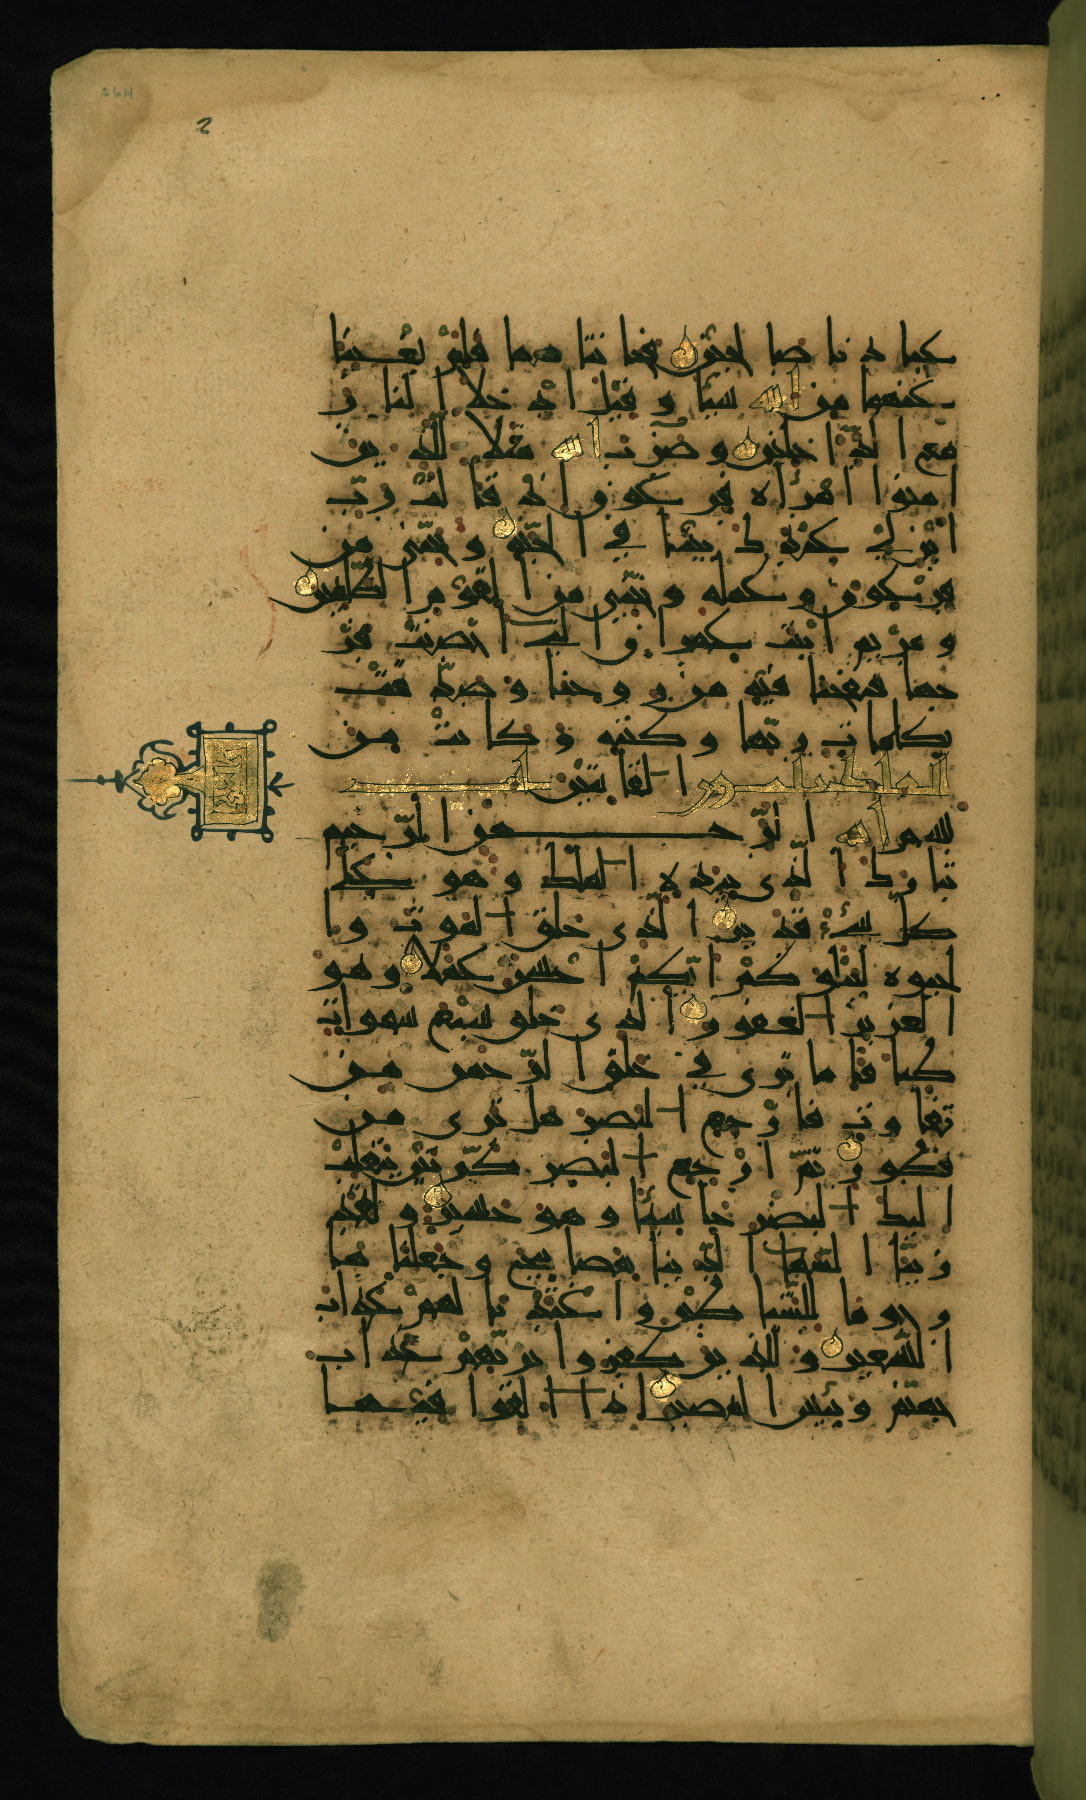 عبادنا صالحين فخانتاهما فلم يغنيا
عنهما من الله شيئا وقيل ادخلا النار
مع الداخلين وضرب الله مثلا للذين
امنوا امرأه فرعون اذ قالت رب
ابن لي عندك بيتا في الجنه ونجني من
فرعون وعمله ونجني من القوم الظلمين
ومريم ابنت عمران التي احصنت فر
جها فنفخنا فيه من روحنا وصدقت
بكلمات ربها وكتبه وكانت من
القانتين
بسم الله الرحمن الرحيم
تبارك الذي بيده الملك وهو على
كل شيء قدير الذي خلق الموت وا
لحيوه ليبلوكم ايكم احسن عملا وهو
العزيز الغفور الذي خلق سبع سموات
طباقا ما ترى في خلق الرحمن من
تفاوت فارجع البصر هل ترى من
فطور ثم ارجع البصر كرتين ينقلب
اليك البصر خاسئا وهو حسير ولقد
زينا السما الدنيا بمصابيح وجعلناها
رجوما للشياطين واعتدنا لهم عذاب
السعير وللذين كفروا بربهم عذاب
جهنم وبئس المصير اذا القوا فيها
2
264